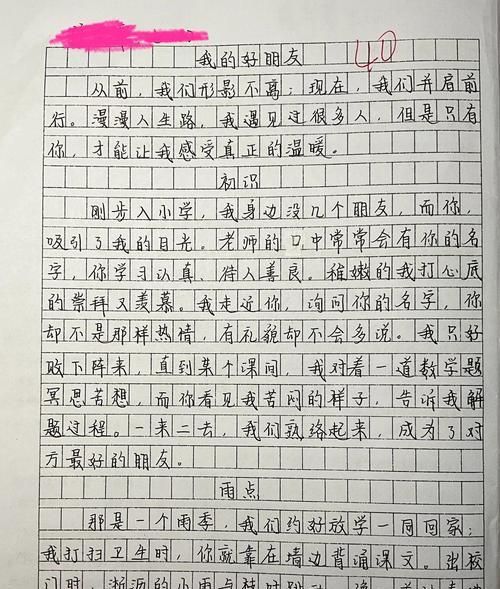 我的好朋友 40
从前，我们形影不离；现在，我们并肩前
行。漫漫人生路，我遇见过很多人，但是只有
你，才能让我感受真正的温暖。
初识
刚步入小学，我身边没几个朋友，而你，
吸引了我的目光。老师的口中常常会有你的名
字，你学习认真、待人善良。稚嫩的我打心底
的崇拜又羡慕。我走近你，询问你的名字，你
却不是那样热情，有礼貌却不会多说。我只好
败下阵来，直到某个课间，我对着一道数学题
冥思苦想，而你看见我苦闷的样子，告诉我解
题过程。一来二去，我们熟络起来，成为了对
方最好的朋友。
雨点
那是一个雨季，我们约好放学一同回家；
我打扫卫生时，你就靠在墙边背诵课文。出校
门时，淅沥的小雨点